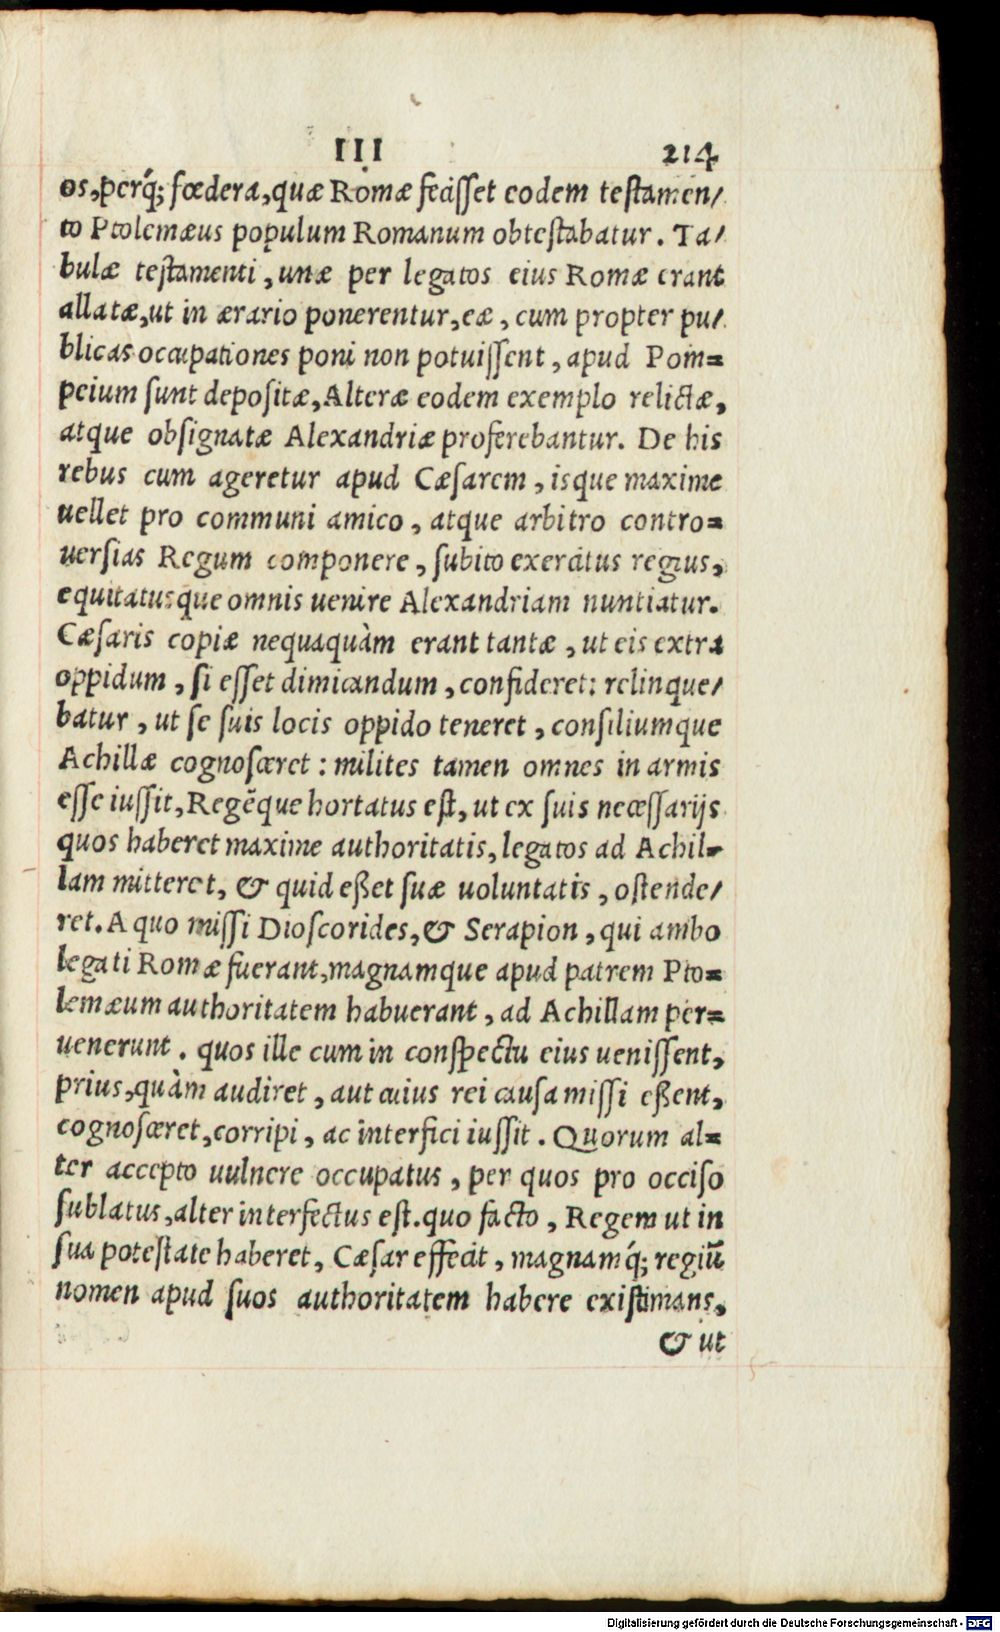 III 214
os,perq́; fœdera,quæ Romæ fecisset eodem testamen/
to Ptolemæus populum Romanum obtestabatur. Ta/
bulæ testamenti, unæ per legatos eius Romæ erant
allatæ,ut in ærario ponerentur,eæ, cum propter pu/
blicas occupationes poni non potuissent, apud Pom=
peium sunt depositæ,Alteræ eodem exemplo relictæ,
atque obsignatæ Alexandriæ proferebantur. De his
rebus cum ageretur apud Cæsarem, isque maxime
uellet pro communi amico, atque arbitro contro=
uersias Regum componere, subito exercitus regius,
equitatusque omnis uenire Alexandriam nuntiatur.
Cæsaris copiæ nequaquàm erant tantæ, ut eis extra
oppidum, si esset dimicandum, confideret: relinque/
batur, ut se suis locis oppido teneret, consiliumque
Achillæ cognosceret: milites tamen omnes in armis
esse iussit, Regēque hortatus est, ut ex suis necessarijs
quos haberet maxime authoritatis, legatos ad Achil=
lam mitteret, & quid eßet suæ uoluntatis, ostende/
ret. A quo missi Dioscorides, & Serapion, qui ambo
legati Romæ fuerant,magnamque apud patrem Pto=
lemæum authoritatem habuerant, ad Achillam per=
uenerunt. quos ille cum in conspectu eius uenissent,
prius,quàm audiret, aut cuius rei causa missi eßent,
cognosceret,corripi, ac interfici iussit. Quorum al=
ter accepto uulnere occupatus, per quos pro occiso
sublatus,alter interfectus est.quo facto, Regem ut in
sua potestate haberet, Cæsar effecit, magnamq́; regiū
nomen apud suos authoritatem habere existimans,
& ut
Digitalisierung gefördert durch die Deutsche Forschungsgemeinschaft - DFG